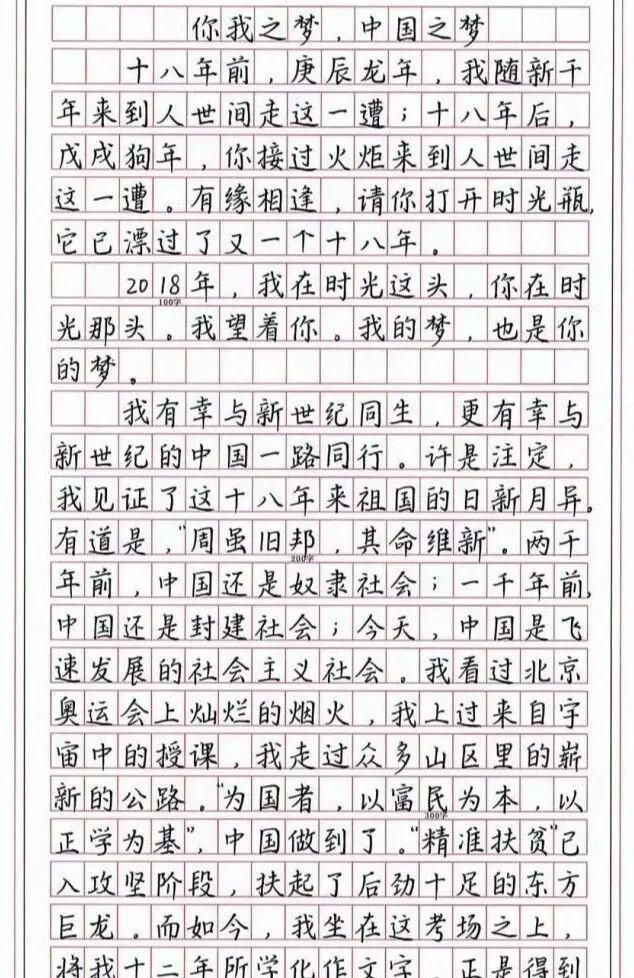 你我之梦,中国之梦
十八年前,庚辰龙年,我随新千
年来到人世间走这一遭;十八年后,
戊戌狗年,你接过火炬来到人世间走
这一遭。有缘相逢,请你打开时光瓶,
它已漂过了又一个十八年。
2018年,我在时光这头,你在时
100字
光那头。我望着你。我的梦,也是你
的梦。
我有幸与新世纪同生,更有幸与
新世纪的中国一路同行。许是注定,
我见证了这十八年来祖国的日新月异。
有道是,“周虽旧邦,其命维新”。两千
200字
年前,中国还是奴隶社会;一千年前,
中国还是封建社会;今天,中国是飞
速发展的社会主义社会。我看过北京
奥运会上灿烂的烟火,我上过来自宇
宙中的授课,我走过众多山区里的崭
新的公路。“为国者,以富民为本,以
300字
正学为基”,中国做到了。“精准扶贫”已
入攻坚阶段,扶起了后劲十足的东方
巨龙。而如今,我坐在这考场之上,
将我十二年所学化作文字,正是得到